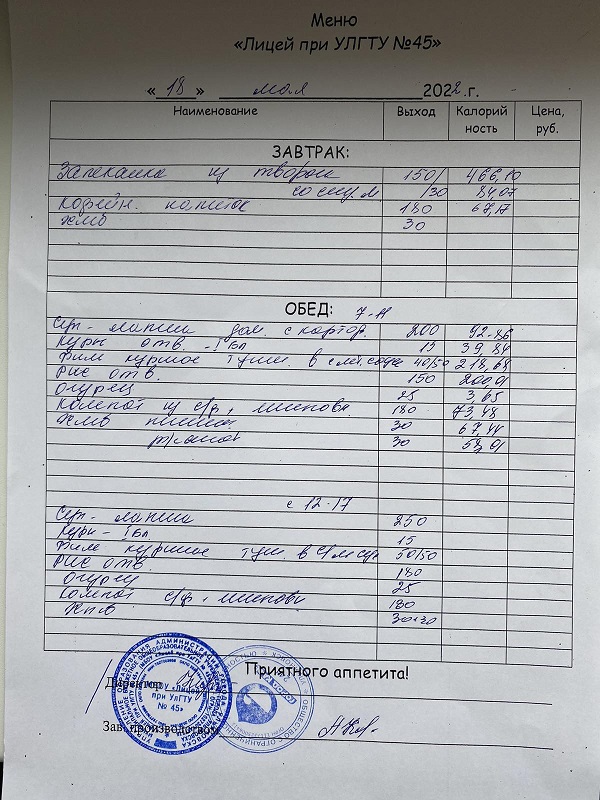 Меню
«Лицей при УЛГТУ №45»
« 18 » мая 2022.г.
Наименование Выход Калорий ность Цена, руб.
ЗАВТРАК:
Запеканка из творога 150/ 466,10
со сгу.м. /30 84,07
Кофейн. напиток 180 67,17
Хлеб 30
ОБЕД: 7-11
Суп - лапша дом. с картоф. 200 92.86
Куры отв. - 1бл 15 39,84
Филе куриное туш. в смет. соусе 40/50 218,68
Рис отв. 150 200,01
Огурец 25 3,65
Компот из с/ф, шиповн. 180 73,48
Хлеб пшенич 30 67,44
ржаной 30 52,01
с 12-17
Суп - лапша 250
Куры - 1бл 15
Филе куриное туш. в см соу 50/50
Рис отв. 180
Огурец 25
Компот с/ф, шиповн 180
Хлеб 30+30
Приятного аппетита!
Директор
МБОУ «Лицей при УлГТУ № 45»
Зав. производством